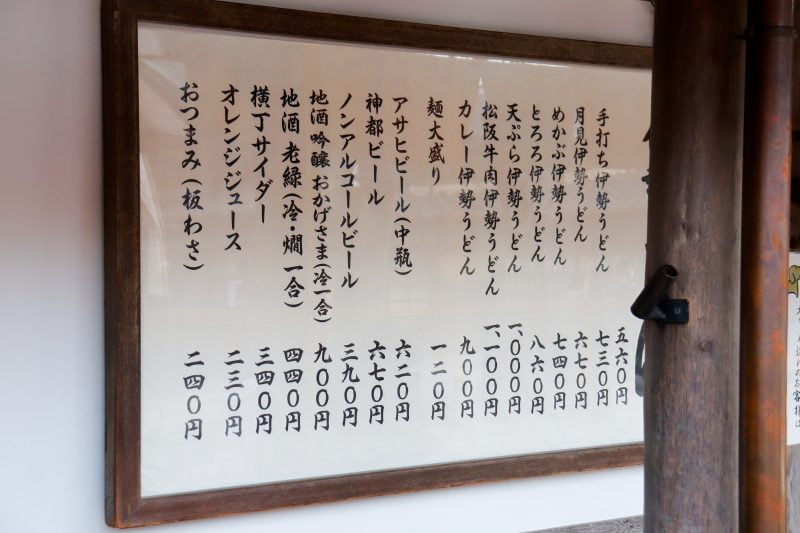 五六〇円
手打ち伊勢うどん 七三〇円
月見伊勢うどん 六七〇円
めかぶ伊勢うどん 七四〇円
とろろ伊勢うどん 八六〇円
天ぷら伊勢うどん 一、〇〇〇円
松阪牛肉伊勢うどん 一、一〇〇円
カレー伊勢うどん 九〇〇円
麺大盛り 一二〇円
アサヒビール(中瓶) 六二〇円
神都ビール 六七〇円
ノンアルコールビール 三九〇円
地酒 吟醸 おかげさま(冷一合) 九〇〇円
地酒 老緑(冷・燗 一合) 四四〇円
横丁サイダー 三四〇円
オレンジジュース 二三〇円
おつまみ(板わさ) 二四〇円